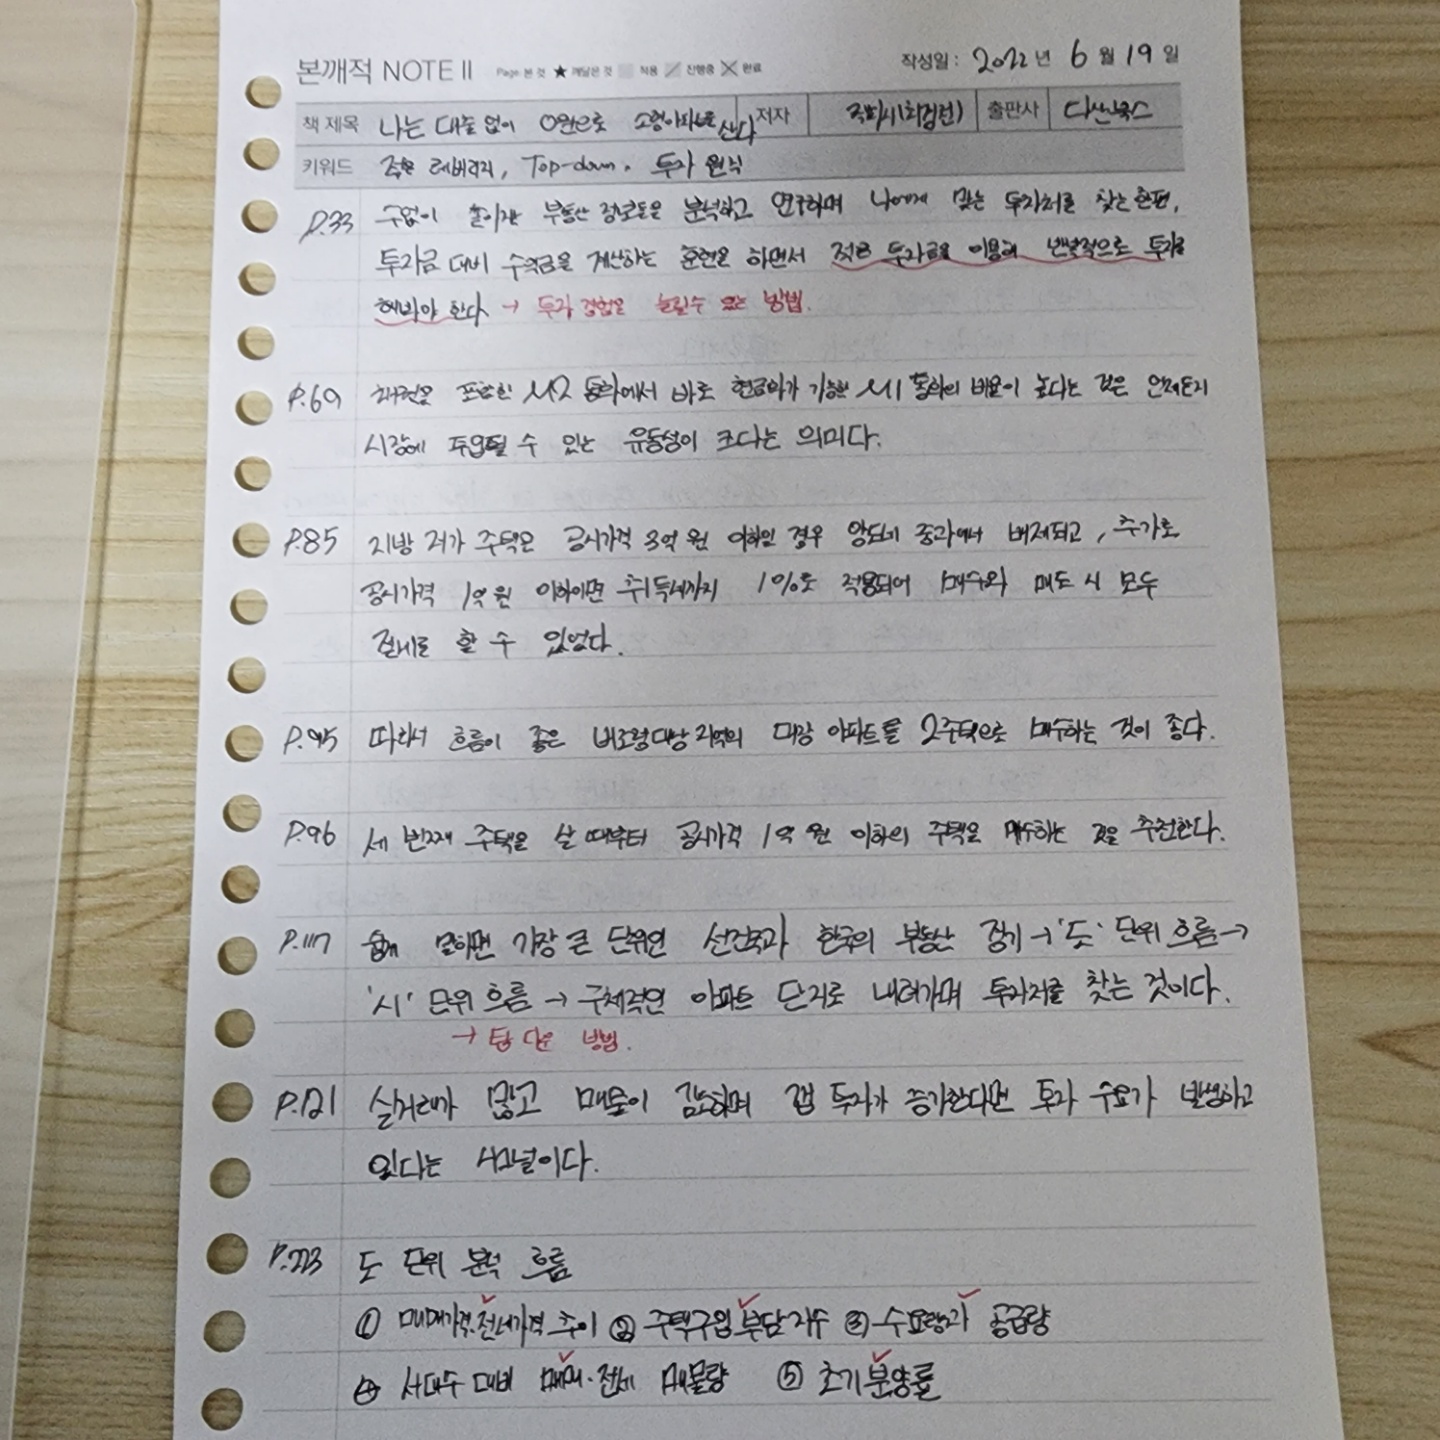 본깨적 NOTE II Page 본 것 ★ 깨달은 것 적용 진행중 완료 작성일 : 2022년 6월 19일
책 제목 나는 대출 없이 0원으로 소형아파트를 산다 저자 출판사 다산북스
키워드 레버리지, Top-down. 투자 원칙
P.33 수없이 쏟아지는 부동산 정보들을 분석하고 연구하며 나에게 맞는 투자처를 찾는 한편,
투자금 대비 수익금을 계산하는 훈련을 하면서 적은 투자금을 이용해 반복적으로 투자를
해봐야 한다 → 투자 경험을 늘릴수 있는 방법.
P.69 포함한 M2 통화에서 바로 현금화가 가능한 M1 통화의 비율이 높다는 것은 언제든지
시장에 투입될 수 있는 유동성이 크다는 의미다.
P.85 지방 저가 주택은 공시가격 3억 원 이하인 경우 양도세 중과에서 배제되고, 추가로
공시가격 1억 원 이하이면 취득세까지 1%로 적용되어 매수와 매도 시 모두
절세를 할 수 있었다.
P.95 따라서 흐름이 좋은 비조정대상지역의 대장 아파트를 2주택으로 매수하는 것이 좋다.
P.96 세 번째 주택을 살 때부터 공시가격 1억 원 이하의 주택을 매수하는 것을 추천한다.
P.117 쉽게 말하면 가장 큰 단위인 선진국과 한국의 부동산 경기 → '도' 단위 흐름 →
'시' 단위 흐름 → 구체적인 아파트 단지로 내려가며 투자처를 찾는 것이다.
→ 탑 다운 방법.
P.121 실거래가 많고 매물이 감소하며 갭 투자가 증가한다면 투자 수요가 발생하고
있다는 시그널이다.
P.223 도 단위 분석 흐름
① 매매가격·전세가격 추이 ② 주택구입부담지수 ③ 수요량과 공급량
④ 세대수 대비 매매·전세 매물량 ⑤ 초기분양률